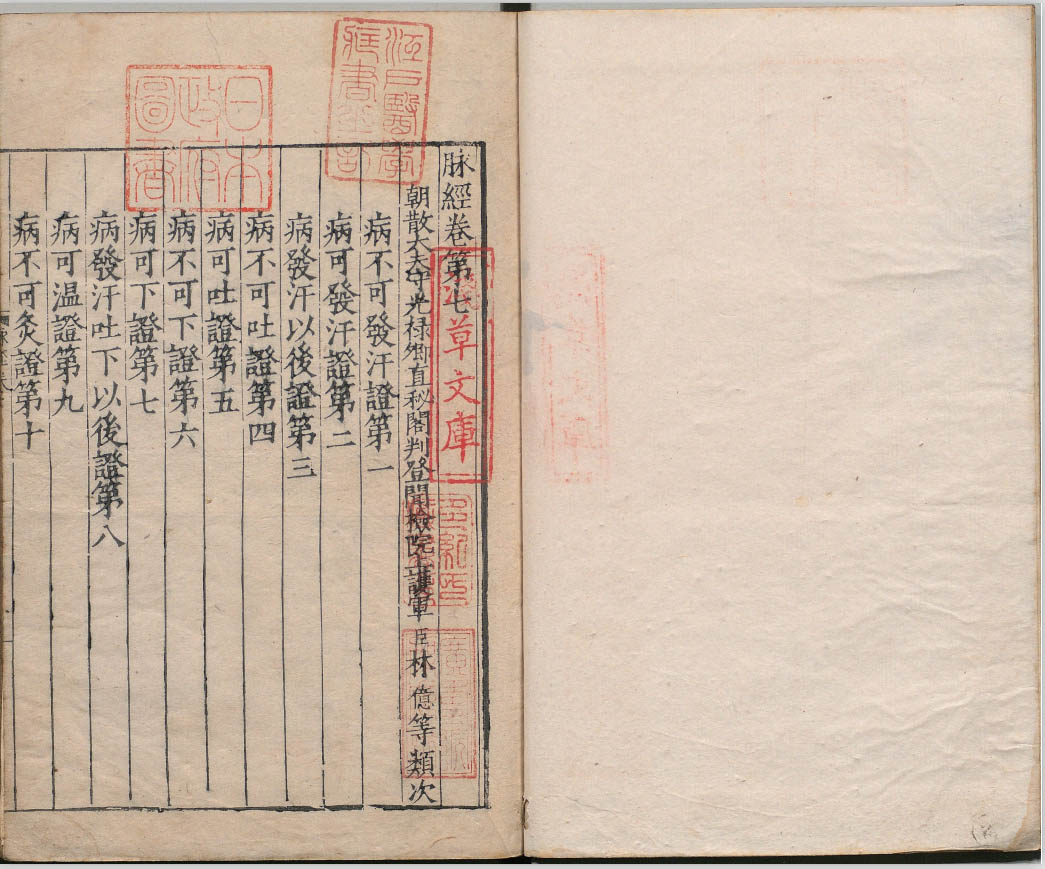 脉經卷第七
朝散大夫守光禄卿直秘閣判登聞檢院上護軍臣林億等類次
病不可發汗證第一
病可發汗證第二
病發汗以後證第三
病不可吐證第四
病可吐證第五
病不可下證第六
病可下證第七
病發汗吐下以後證第八
病可温證第九
病不可灸證第十
江戸醫學
藏書之記
日本
政府
圖書
草文庫